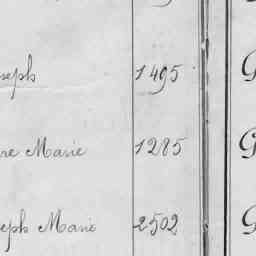 seph 1495 G
re Marie 1285 G
seph Marie 2502 G